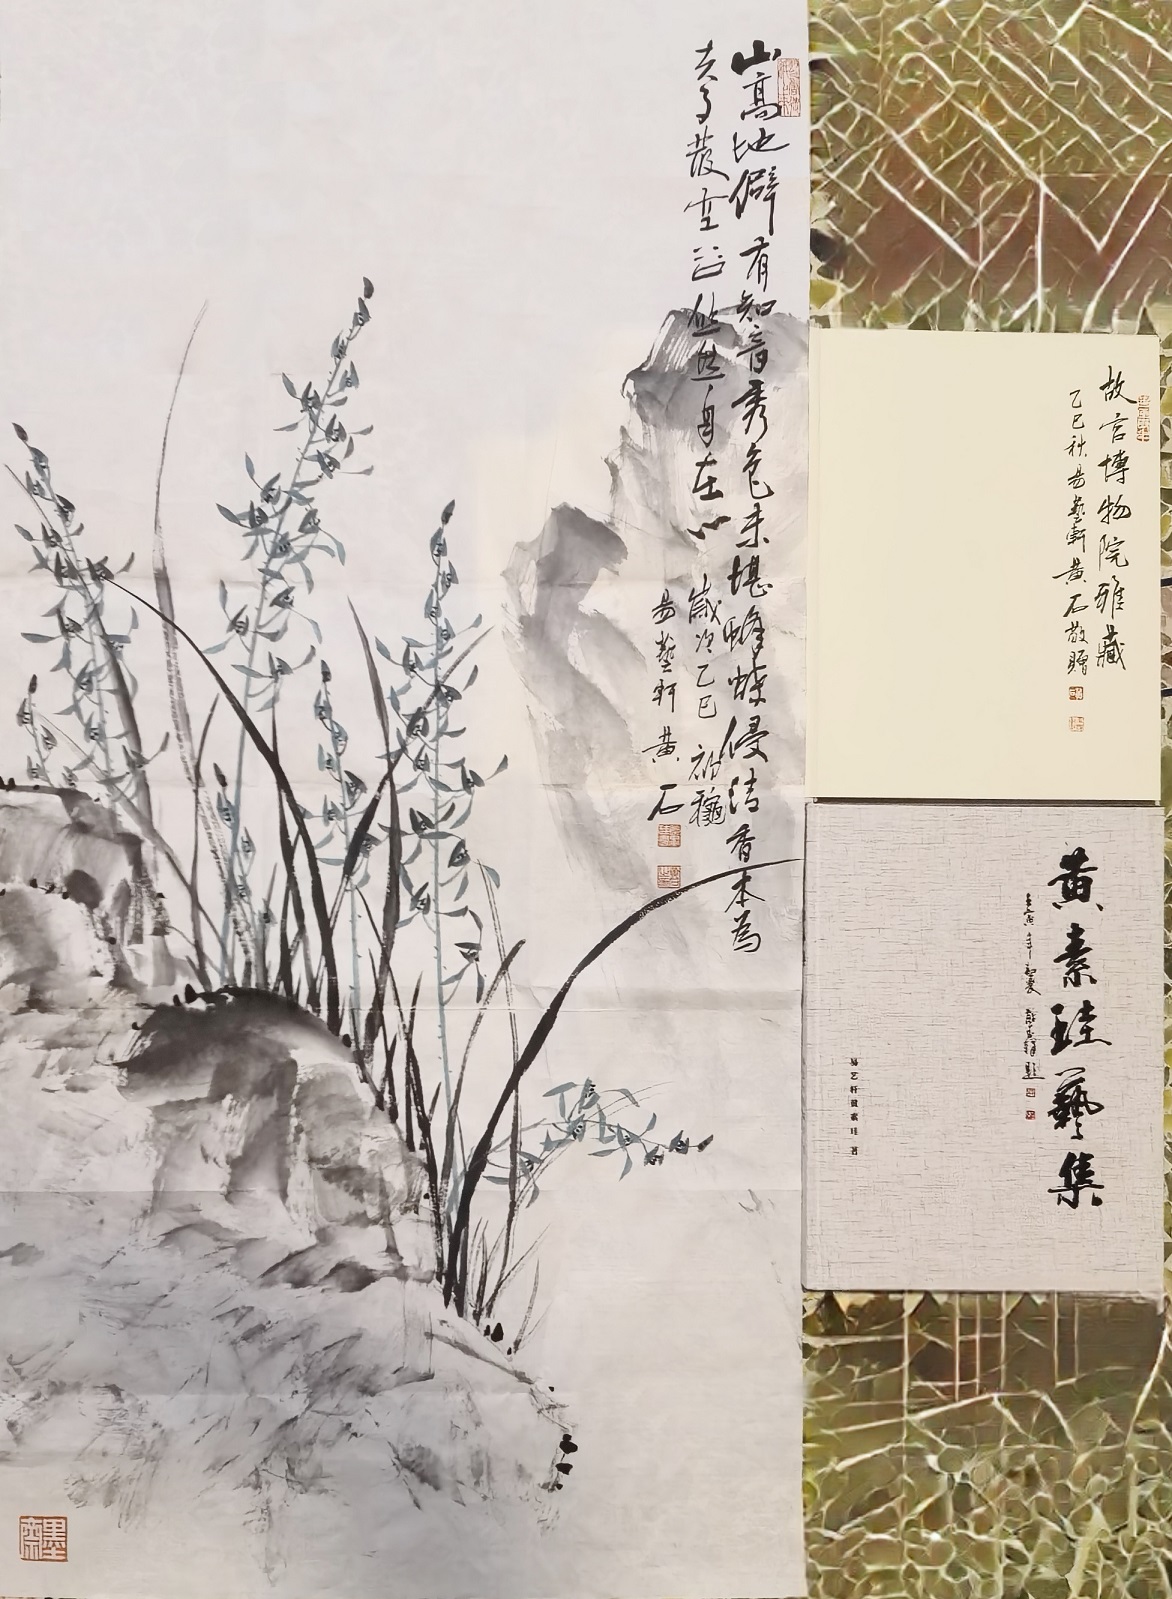 山高地僻有知音秀色未堪蜂蝶侵清香本為
夫子發空谷悠然自在心 歲次乙巳初秋
易藝軒 黃石
故宮博物院雅藏
乙巳秋易藝軒黃石敬贈
黃素珪藝集
壬寅年夏
易艺轩黄素珪 著